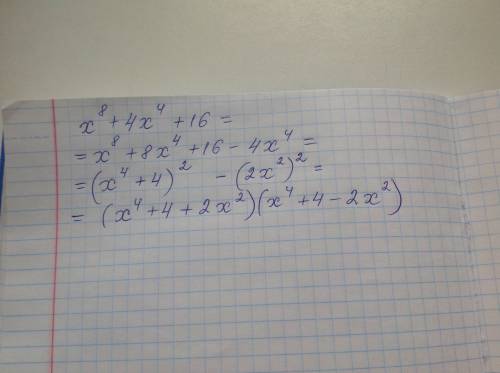 x⁸ + 4x⁴ + 16 =
= x⁸ + 8x⁴ + 16 - 4x⁴ =
= (x⁴ + 4)² - (2x²)² =
= (x⁴ + 4 + 2x²)(x⁴ + 4 - 2x²)